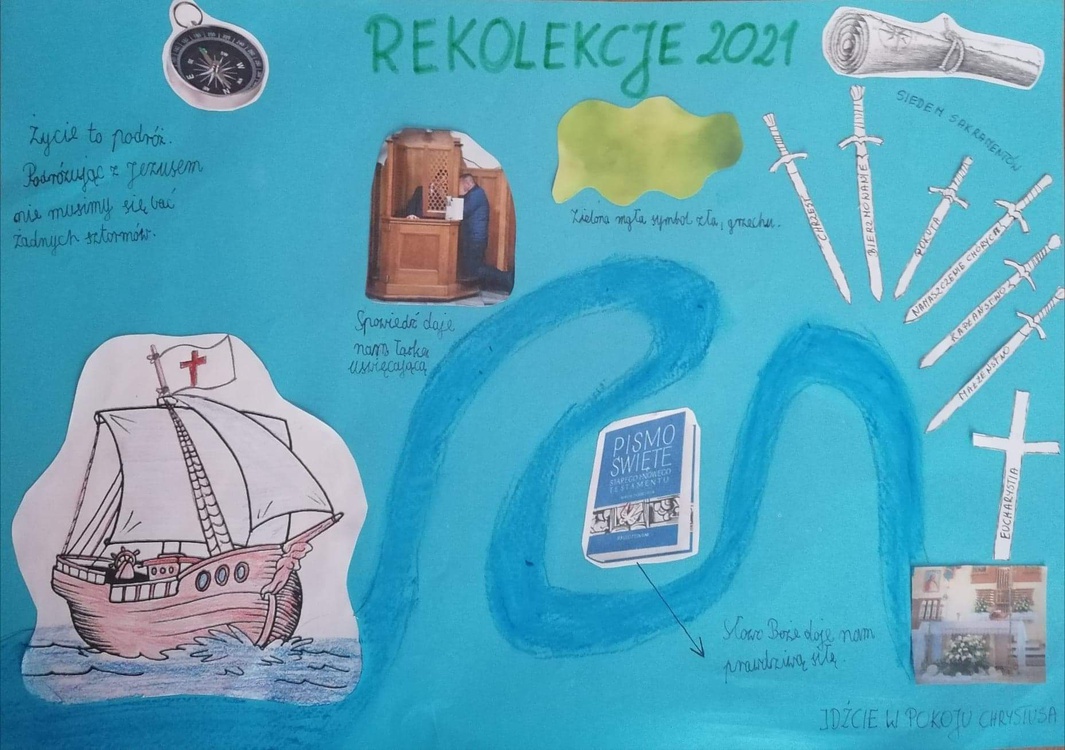 REKOLEKCJE 2021
Życie to podróż.
Podróżując z Jezusem
nie musimy się bać
żadnych sztormów.
Zielona mgła symbol zła, grzechu.
SIEDEM SAKRAMENTÓW
CHRZEST
BIERZMOWANIE
POKUTA
NAMASZCZENIE CHORYCH
KAPŁAŃSTWO
MAŁŻEŃSTWO
EUCHARYSTIA
Spowiedź daje
nam łaskę
uświęcającą
PISMO
ŚWIĘTE
STAREGO I NOWEGO
TESTAMENTU
Słowo Boże daje nam
prawdziwą siłę.
IDŹCIE W POKOJU CHRYSTUSA